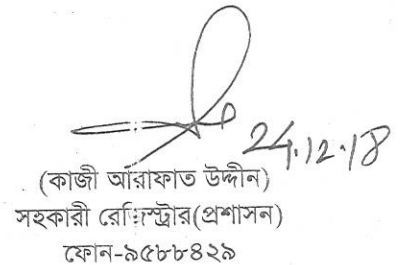 24.12.18
(কাজী আরাফাত উদ্দীন)
সহকারী রেজিস্ট্রার(প্রশাসন)
ফোন-৯৫৮৮৪২৯